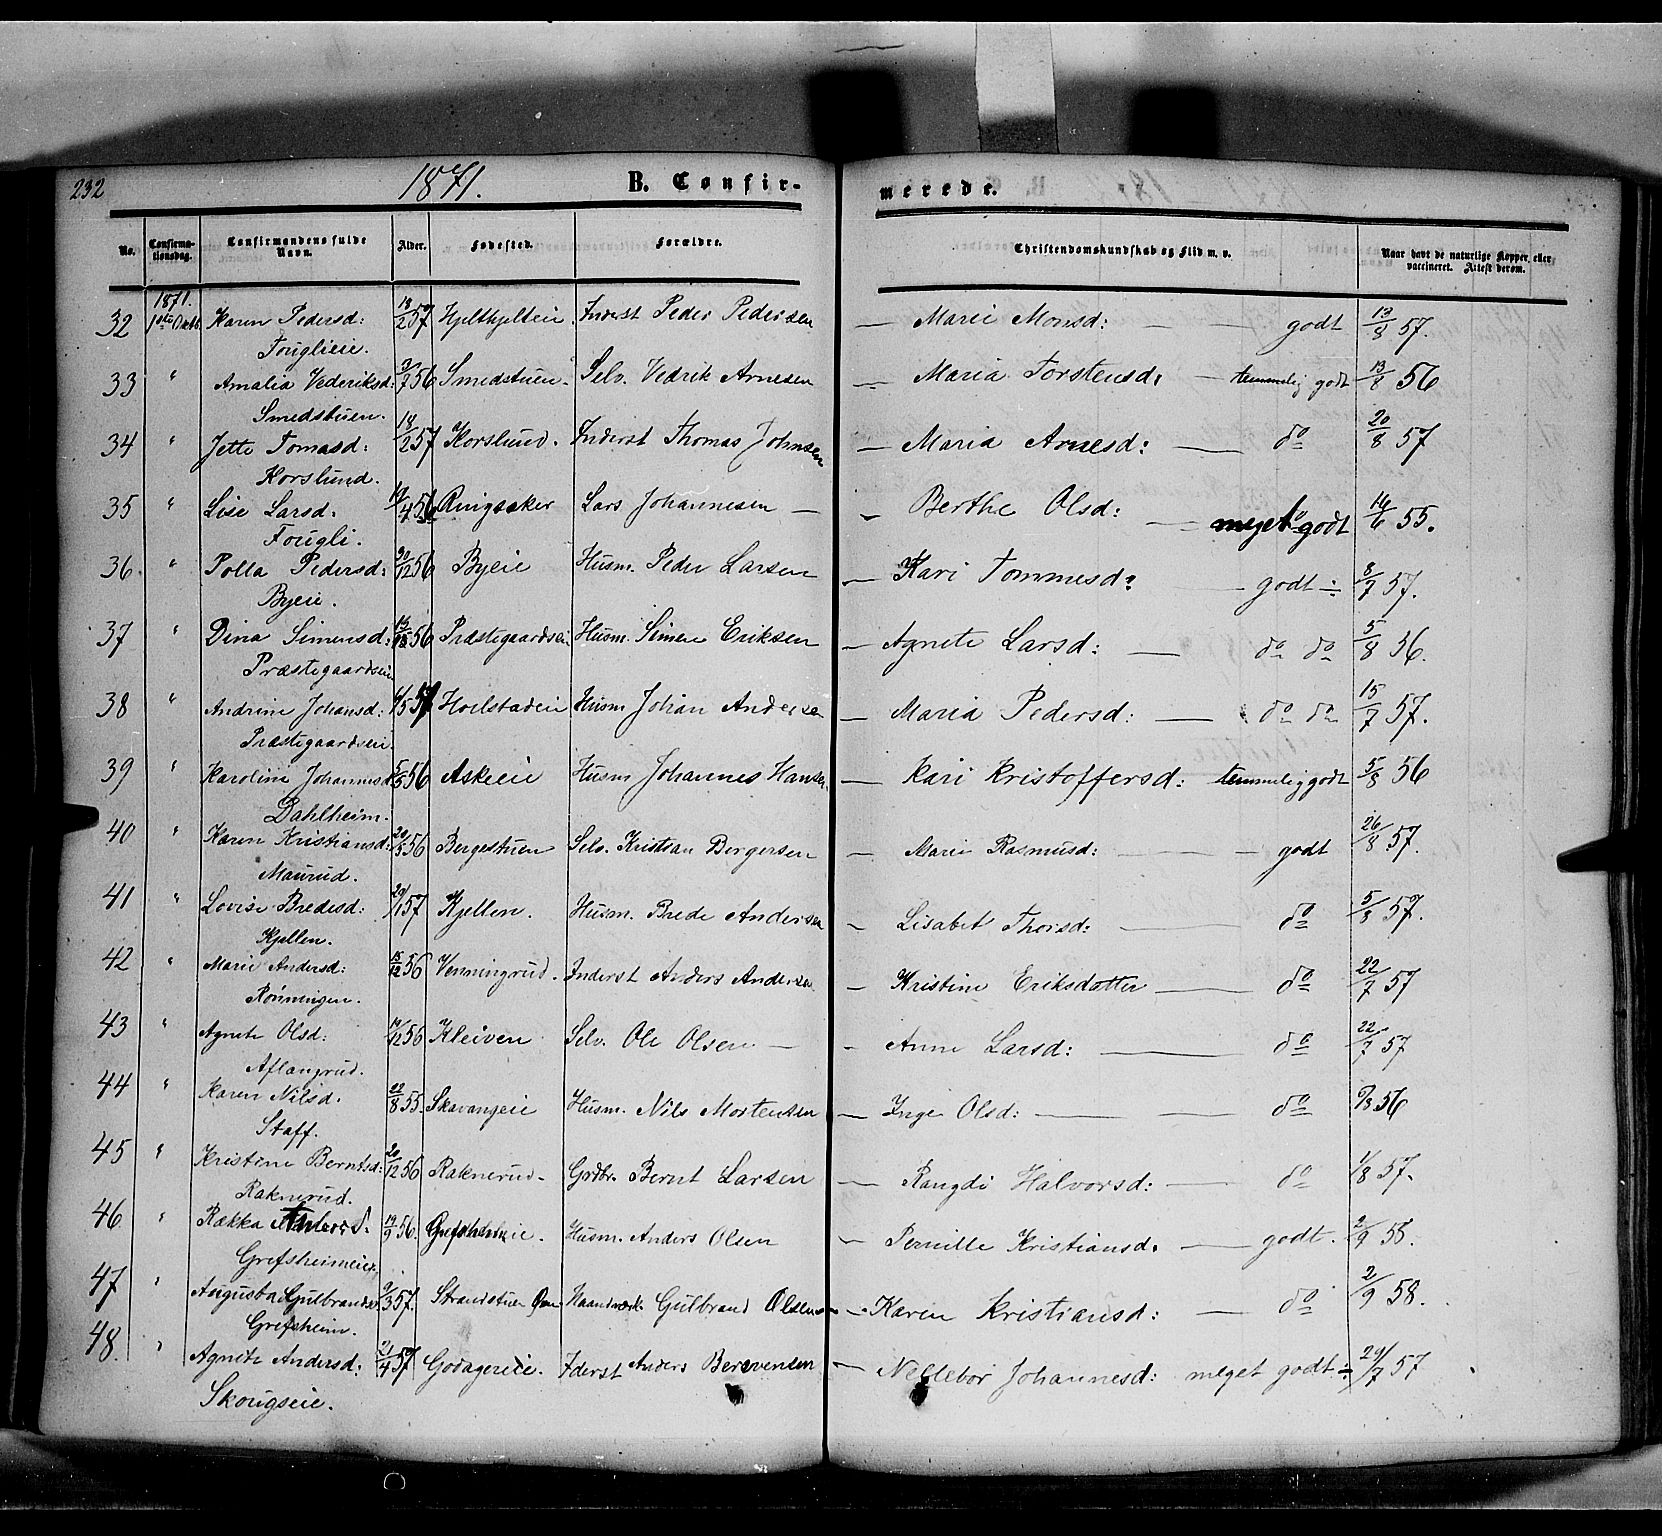 232 1871. B. Confir- merede.
No. Confirmationsdag. Confirmandens fulde Navn. Alder. Fødested. Forældre. Christendomskundskab og Flid m. v. Naar havt de naturlige Kopper, eller vaccineret. Attest derom.
1871.
32 1ste Octb. Karen Pedersd: 18/2 57 Hjelthjelteie. Inderst Peder Pedersen — Marie Monsd: — — godt 13/8 57.
Fouglieie.
33 " Amalia Vederiksd: 56 Smedstuen. Selv. Vedrik Arnesen — Maria Torstensd: — temmelig godt 13/8 56
Smedstuen.
34 " Jette Tomasd: 18/2 57 Korslund. Inderst Thomas Johnsen — Maria Arnesd: — do 20/8 57
Korslund.
35 " Lise Larsd: 56 Ringsaker Lars Johannesen — — Berthe Olsd: — meget godt 14/6 55.
Fougli.
36. " Polla Pedersd: 30/12 56 Byeie Husm. Peder Larsen — Kari Tommesd: — godt ÷ 8/7 57.
Byeie.
37 " Dina Simensd: 56 Præstegaardsei Husm. Simen Eriksen — Agnete Larsd: — do do 5/8 56.
Præstegaardseie
38 " Andrine Johansd: 57 Hoelstadeie Husm Johan Andersen — Maria Pedersd: — do do 15/7 57.
Præstegaardseie.
39 " Karoline Johannesd: 56 Askeeie Husm Johannes Hansen — Kari Kristoffersd: temmelig godt 5/8 56
Dahlheim.
40 " Karen Kristiansd: 56 Bergestuen Selv. Kristian Bergersen — Marie Rasmusd: — godt 26/8 57.
Maurud.
41 " Lovise Bredesd: 29/1 57 Kjellen. Husm. Brede Andersen — Lisabet Thorsd: — do 5/8 57.
Kjellen.
42 " Marie Andersd: 15/12 56 Venningrud. Inderst Anders Andersen — Kristine Eriksdatter — do 22/7 57
Rönningen.
43 " Agnete Olsd: 56 Kleiven Selv. Ole Olsen — — Anne Larsd: — do 22/7 57
Aflangrud.
44 " Karen Nilsd. 22/8 55. Skavangeie Husm. Nils Mostensen — Inge Olsd: — do 56
Staff.
45 " Kristine Berntsd: 20/12 56 Raknerud. Grdbr. Bernt Larsen — Rangdi Halvorsd: — do 1/8 57.
Raknerud.
46 " Rækka Andersd. 19/9 56. Grefsheimeie. Husm. Anders Olsen — Pernille Kristiansd: — godt. 2/9 58.
Grefsheimeie.
47 " Augusta Gulbrandsd. 9/3 57. Strandstuen Haandværk. Gulbrand Olsen — Karen Kristiansd: — do 2/9 58.
Grefsheim.
48. " Agnete Andersd: 57 Godagereie. Iderst Anders Berevensen — Nellebor Johannesd: meget godt ÷ 29/7 57
Skougseie.